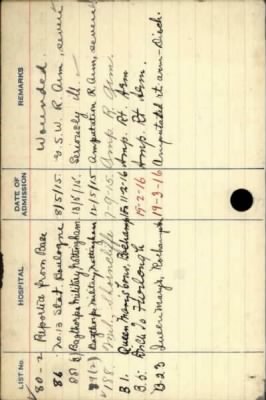 LIST NO. HOSPITAL DATE OF ADMISSION REMARKS
80-2 Reported from Base Wounded.
86 No. 13 Stat. Boulogne 8/5/15. G.S.W. R. Arm, severe
88 Bagthorpe Military, Nottingham 13/5/15. Seriously ill.
89(2) Bagthorpe Military, Nottingham 12/5/15 Amputation R. Arm, severe
188. 7-9-15. Amp R. Arm.
B1. Queen Mary's Conv. Roehampton 11-2-16 Amp. Rt Arm
B.5. Furlough 15-2-16 Amp. Rt Arm.
B23 Queen Mary's, Roehampton 19-3-16 Amputated rt arm - Disch.